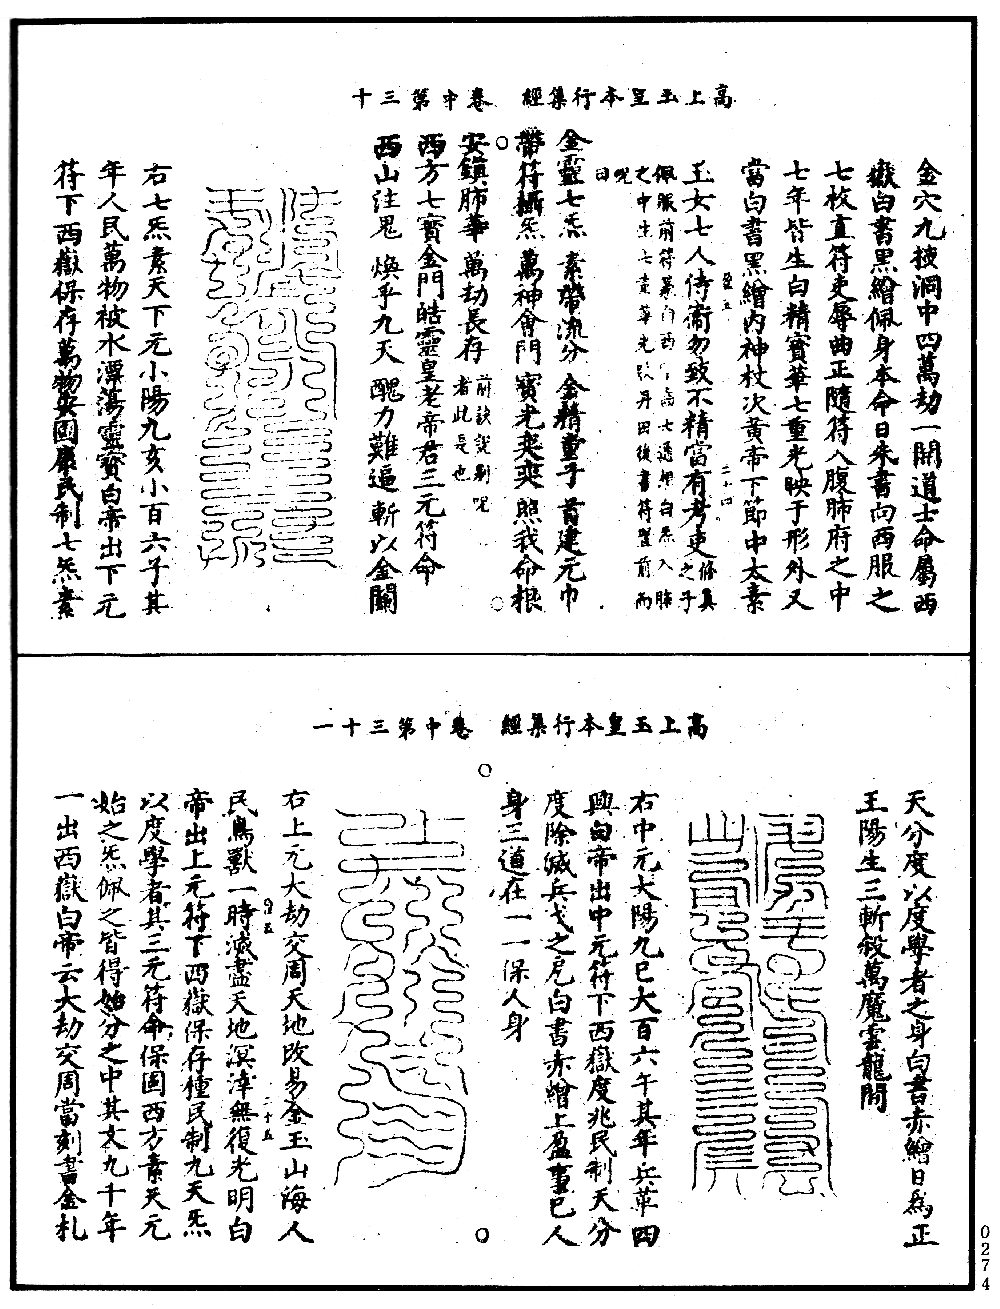 高上玉皇本行集經　卷中第三十
金穴九掖洞中四萬劫一開道士命屬西
嶽白書黑繒佩身本命日朱書向西服之
七枚直符吏辱曲正隨符入腹肺府之中
七年皆生白精寶華七重光映于形外又
當白書黑繒內神杖次黃帝下節中太素
玉女七人侍衛勿致不精當有考吏修真之子
佩服前符
之中生七素華光
呪曰
金靈七炁　素帶流分　金精童子　首建元巾
帶符攝炁　萬神會門　寶光奕奕　照我命根
安鎮肺華　萬劫長存　前訣說別呪者此是也
西方七寶金門皓靈皇老帝君三元符命
西山注鬼　煥乎九天　醜力難遏　斬以金關
右七炁素天下元小陽九亥小百六子其
年人民萬物被水潭蕩靈寶白帝出下元
符下西嶽保存萬物安國康民制七炁素
高上玉皇本行集經　卷中第三十一
天分度以度學者之身白書赤繒日為正
王陽生三斬殺萬魔雲龍關
右中元大陽九巳大百六午其年兵革四
興白帝出中元符下西嶽度兆民制天分
度除滅兵戈之危白書赤繒上盈畫巳人
身三道在一一保人身
右上元大劫交周天地改易金玉山海人
民鳥獸一時滅盡天地溟涬無復光明白
帝出上元符下西嶽保存種民制九天炁
以度學者其三元符命保固西方素天元
始之炁佩之皆得始分之中其文九千年
一出西嶽白帝云大劫交周當刻書金札
0274